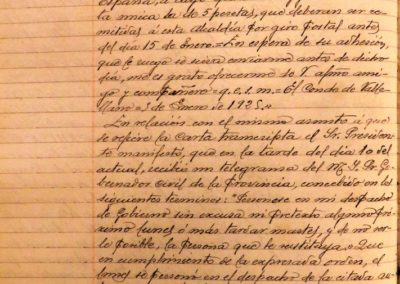 España, a cuyo
la única de de 5 pesetas, que deberan ser re-
mitidas á esta Alcaldía por giro postal antes
del dia 15 de Enero = En espera de su adhesión,
que le ruego se sirva enviarme antes de dicho
dia, me es grato ofrecerme de V. afmo ami-
go y compañero = q.e.s.m. = El Conde de Valle-
llano = 3 de Enero de 1925 =
En relación con el mismo asunto á que
se refiere la carta transcripta el Sr. Presiden-
te manifestó, que en la tarde del dia 10 del
actual, recibió un telegrama del M. I. Sr. Go-
bernador Civil de la Provincia, concebido en los
siguientes terminos: "Personese en mi despacho
de Gobierno sin excusa ni pretexto alguno pró-
ximo lunes ó mas tardar martes, y de no ser-
lo posible, la persona que le sustituya. = Que
en cumplimiento de la expresada orden, el
lunes se personó en el despacho de la citada au-